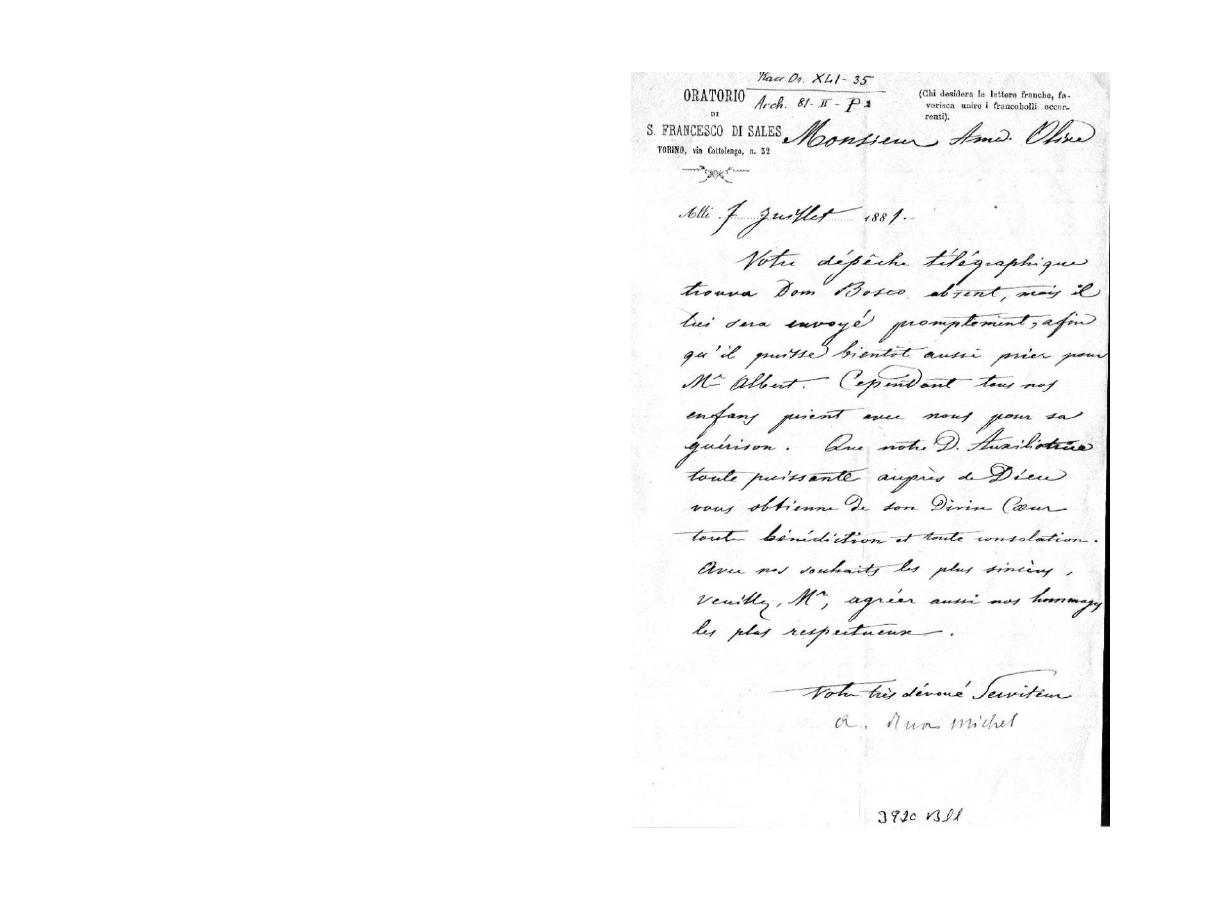 Arch. 81 - II - P 2
ORATORIO
DI
S. FRANCESCO DI SALES
TORINO, via Cottolengo, n. 32
(Chi desidera le lettere franche, fa-
vorisca unire i francobolli occor-
renti).
Monsieur Amd. Olive
Alli 7 Juillet 1881.
Votre dépêche télégraphique
trouva Dom Bosco absent, mais il
lui sera envoyé promptement, afin
qu'il puisse bientôt aussi prier pour
Mr Albert. Cependant tous nos
enfans prient avec nous pour sa
guérison. Que notre D. Auxiliatrice
toute puissante auprès de Dieu
vous obtienne de son Divin Cœur
toute bénédiction et toute consolation.
Avec nos souhaits les plus sincères,
veuillez, Mr, agréer aussi nos hommages
les plus respectueux.
Votre très dévoué Serviteur
Rua Michel